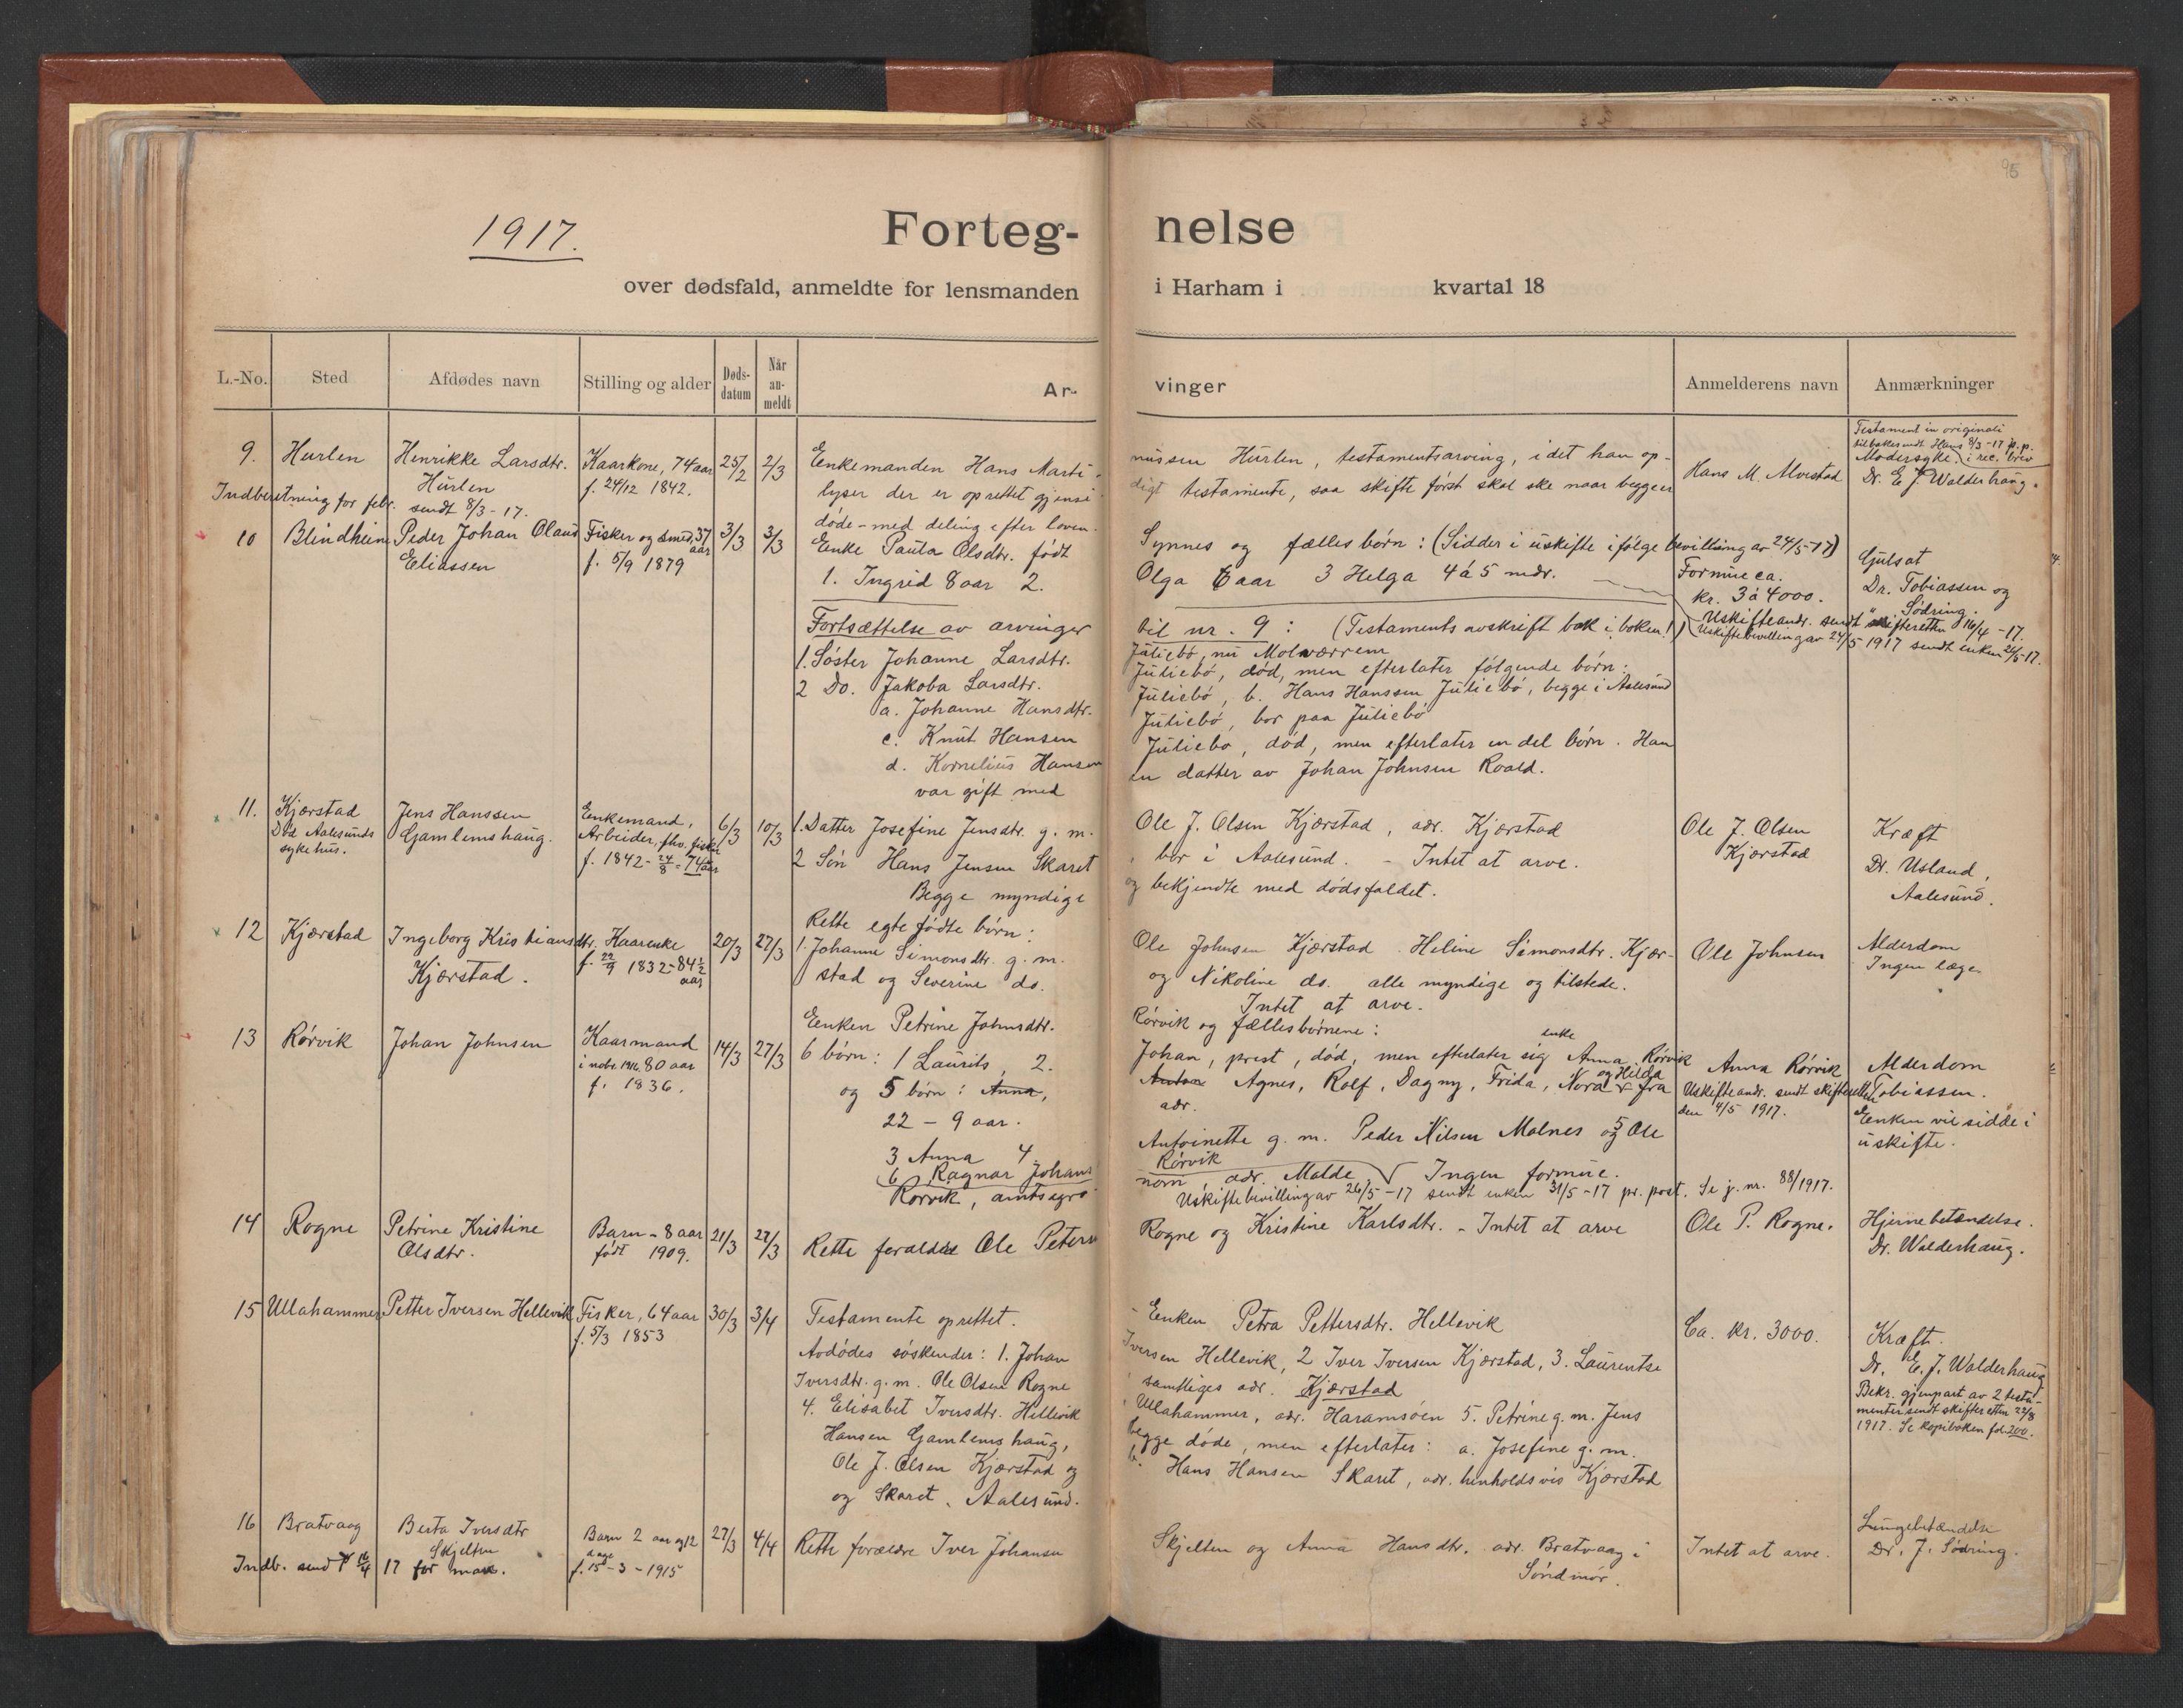 95
1917.
Forteg- nelse
over dødsfald, anmeldte for lensmanden i Harham i kvartal 18
L.-No. Sted Afdødes navn Stilling og alder Døds-datum Når an-meldt Ar- vinger Anmelderens navn Anmærkninger
9. Hurlen Henrikke Larsdtr. Kaarkone, 74 aar 25/2 2/3 Enkemanden Hans Marti- nussen Hurlen, testamentsarving, idet han op- Hans M. Alvestad
Hurlen f. 24/12 1842. lyser der er oprettet gjensi- digt testamente, saa skifte først skal ske naar begge er
døde - med deling efter loven.
Testament in originali
tilbakesendt Hans 8/3-17 p.p.
Modersyke. i rec. brev
Dr. E J Walderhaug.
Indberetning for febr. sendt 8/3-17.
10 Blindheim Peder Johan Olaus Fisker og smed, 37 aar 3/3 3/3 Enke Paula Olsdtr. født Synnes og fælles børn: (Sidder i uskifte ifølge bevilling av 24/5-17)
Eliassen f. 5/9 1879 1. Ingrid 8 aar 2. Olga 6 aar 3 Helga 4 á 5 mdr.
Formue ca.
kr. 3 á 4000.
Gulsot
Dr. Tobiassen og
Sødring.
Uskifteandr. sendt skifteretten 16/4-17.
Uskiftebevilling av 24/5 1917 sendt enken 26/5 17.
Fortsættelse av arvinger til nr. 9: (Testaments avskrift bak i boken!)
1. Søster Johanne Larsdtr. Juliebø, nu Molværrem
2 Do. Jakoba Larsdtr. Juliebø, død, men efterlater følgende børn:
a. Johanne Hansdtr. Juliebø, b. Hans Hanssen Juliebø, begge i Aalesund
c. Knut Hansen Juliebø, bor paa Juliebø
d. Kornelius Hansen Juliebø, død, men efterlater en del børn. Han
var gift med en datter av Johan Johnsen Roald.
11. Kjørstad Jens Hanssen Enkemand, 6/3 10/3 1. Datter Josefine Jensdtr. g. m. Ole J. Olsen Kjørstad, adr. Kjørstad Ole J. Olsen Kræft
Død Aalesunds Gamlemshaug. Arbeider, fhv. fisker 2 Søn Hans Jensen Skaret, bor i Aalesund. - Intet at arve. Kjørstad Dr. Usland,
sykehus. f. 1842 - 24/8 - 74 aar Begge myndige og bekjendte med dødsfaldet. Aalesund.
12 Kjørstad Ingeborg Kristiansdtr. Kaarenke 20/3 27/3 Rette egte fødte børn:
Kjørstad. f. 22/9 1832 - 84½ aar 1. Johanne Simonsdtr. g. m. Ole Johnsen Kjørstad. Heline Simonsdtr. Kjør- Ole Johnsen Alderdom
stad og Severine do. og Nikoline do. alle myndige og tilstede. Ingen læge.
Intet at arve.
13 Rørvik Johan Johnsen Kaarmand 14/3 27/3 Enken Petrine Johnsdtr. Rørvik og fællesbørnene:
i nobr. 1916. 80 aar 6 børn: 1 Laurits, 2. Johan, prest, død, men efterlater sig enke Anna Rørvik Anna Rørvik Alderdom
f. 1836. og 5 børn: Anna, Agnes, Rolf, Dagny, Frida, Nora og Hilda fra Tobiassen.
22 - 9 aar. adr.
Uskifteandr. sendt skifteretten
den 4/5 1917.
Enken vil sidde i
uskifte.
3 Anna 4 Antoinette g. m. Peder Nilsen Malnes og 5 Ole
Rørvik
6 Ragnar Johans
Rørvik, amtsagro- nom, adr. Molde Ingen formue.
Uskiftebevilling av 26/5-17 sendt enken 31/5-17 pr. post. Se j. nr. 88/1917.
14 Rogne Petrine Kristine Barn - 8 aar 21/3 27/3 Rette foraldre Ole Petersen Rogne og Kristine Karlsdtr. - Intet at arve Ole P. Rogne. Hjernebetændelse.
Olsdtr. født 1909. Dr. Walderhaug.
15 Ullahammer Petter Iversen Hellevik Fisker, 64 aar 30/3 3/4 Testamente oprettet. - Enken Petra Pettersdtr. Hellevik Ca. kr. 3000. Kræft.
f. 5/3 1853 Avdødes søskender: 1. Johan Iversen Hellevik, 2 Iver Iversen Kjørstad, 3. Laurentse
Iversdtr. g. m. Ole Olsen Rogne samtliges adr. Kjørstad
4. Elisabet Iversdtr. Hellevik Ullahammer, adr. Haramsøen 5. Petrine g. m. Jens
Hansen Gamlemshaug, begge døde, men efterlater: a. Josefine g. m.
Ole J. Olsen Kjørstad og b. Hans Hansen Skaret, adr. henholdsvis Kjørstad
og Skaret, Aalesund.
Dr. E. J. Walderhaug
Bekr. gjenpart av 2 testa-
menter sendt skifteretten 22/8
1917. Se kopiboken fol. 200.
16 Bratvaag Berta Iversdtr Barn 2 aar og 12 27/3 4/4 Rette forældre Iver Johansen Skjelten og Anna Hansdtr. adr. Bratvaag i Intet at arve. Lungebetændelse
Skjelten dage Søndmør. Dr. J. Sødring.
f. 15-3-1915
Indb. send 16/4 17 for mars.